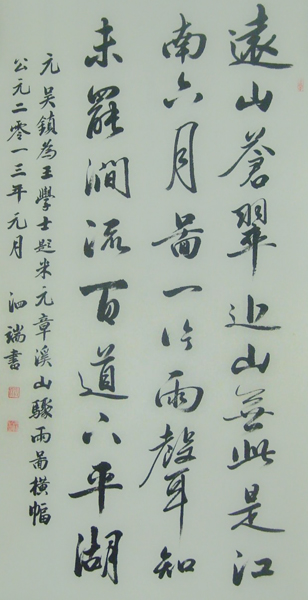 遠山蒼翠近山無此是江
南六月圖一片雨聲知
未罷澗流百道下平湖
元吳鎮為王學士題米元章溪山驟雨圖橫幅
公元二零一三年元月 泗端書